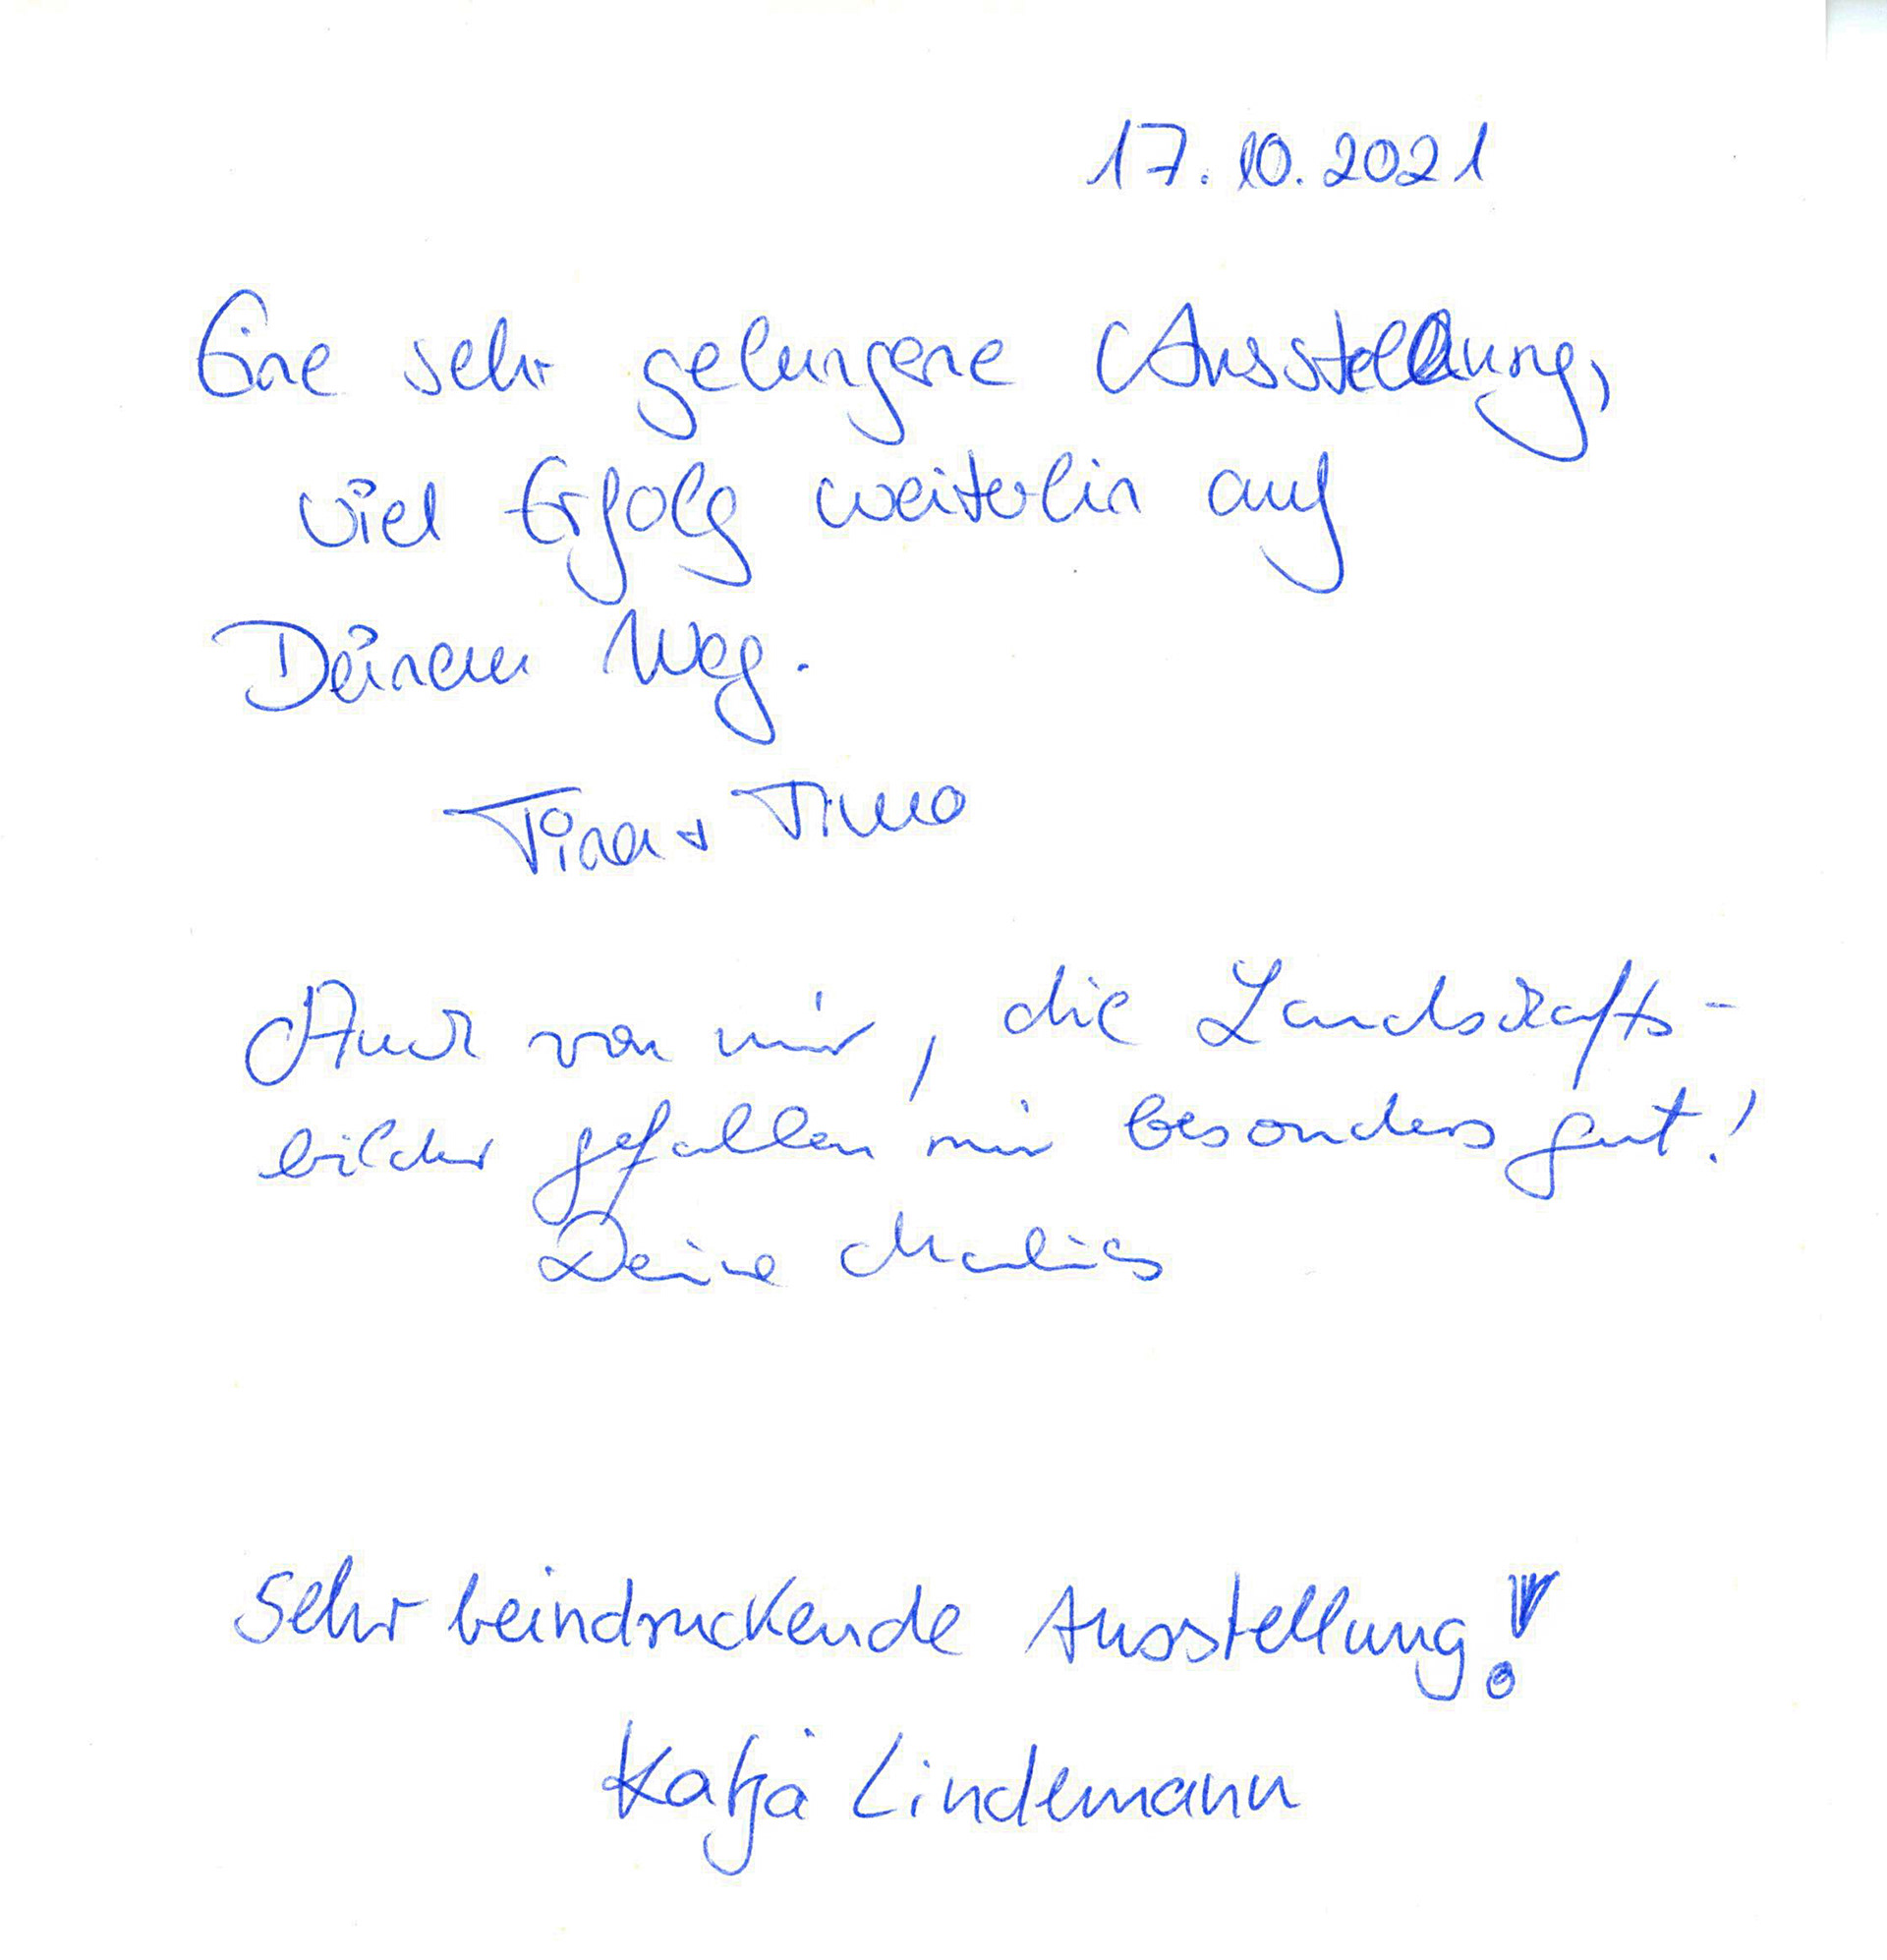 17.10.2021
Eine sehr gelungene Ausstellung,
viel Erfolg weiterhin auf
Deinem Weg.
Tina + Timo
Auch von mir, die Landschafts-
bilder gefallen mir besonders gut!
Deine Marlies
Sehr beindruckende Ausstellung!
Katja Lindemann